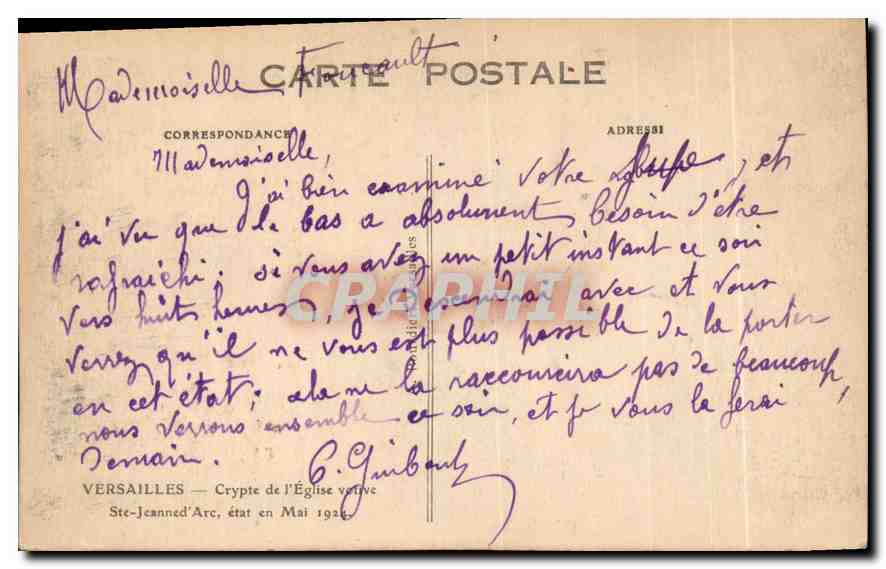 Mademoiselle Foucault
CARTE POSTALE
CORRESPONDANCE
ADRESSE
Mademoiselle,
J'ai bien examiné votre jupe, et
j'ai vu que le bas a absolument besoin d'être
rafraichi. Si vous avez un petit instant ce soir
vers huits heures, je descendrai avec et vous
verrez qu'il ne vous est plus possible de la porter
en cet état; cela ne la raccourcira pas de beaucoup,
nous verrons ensemble ce soir, et je vous la ferai
demain.
C. Guibert
VERSAILLES — Crypte de l'Église votive
Ste-Jeanned'Arc, état en Mai 1924
CPAPHIL